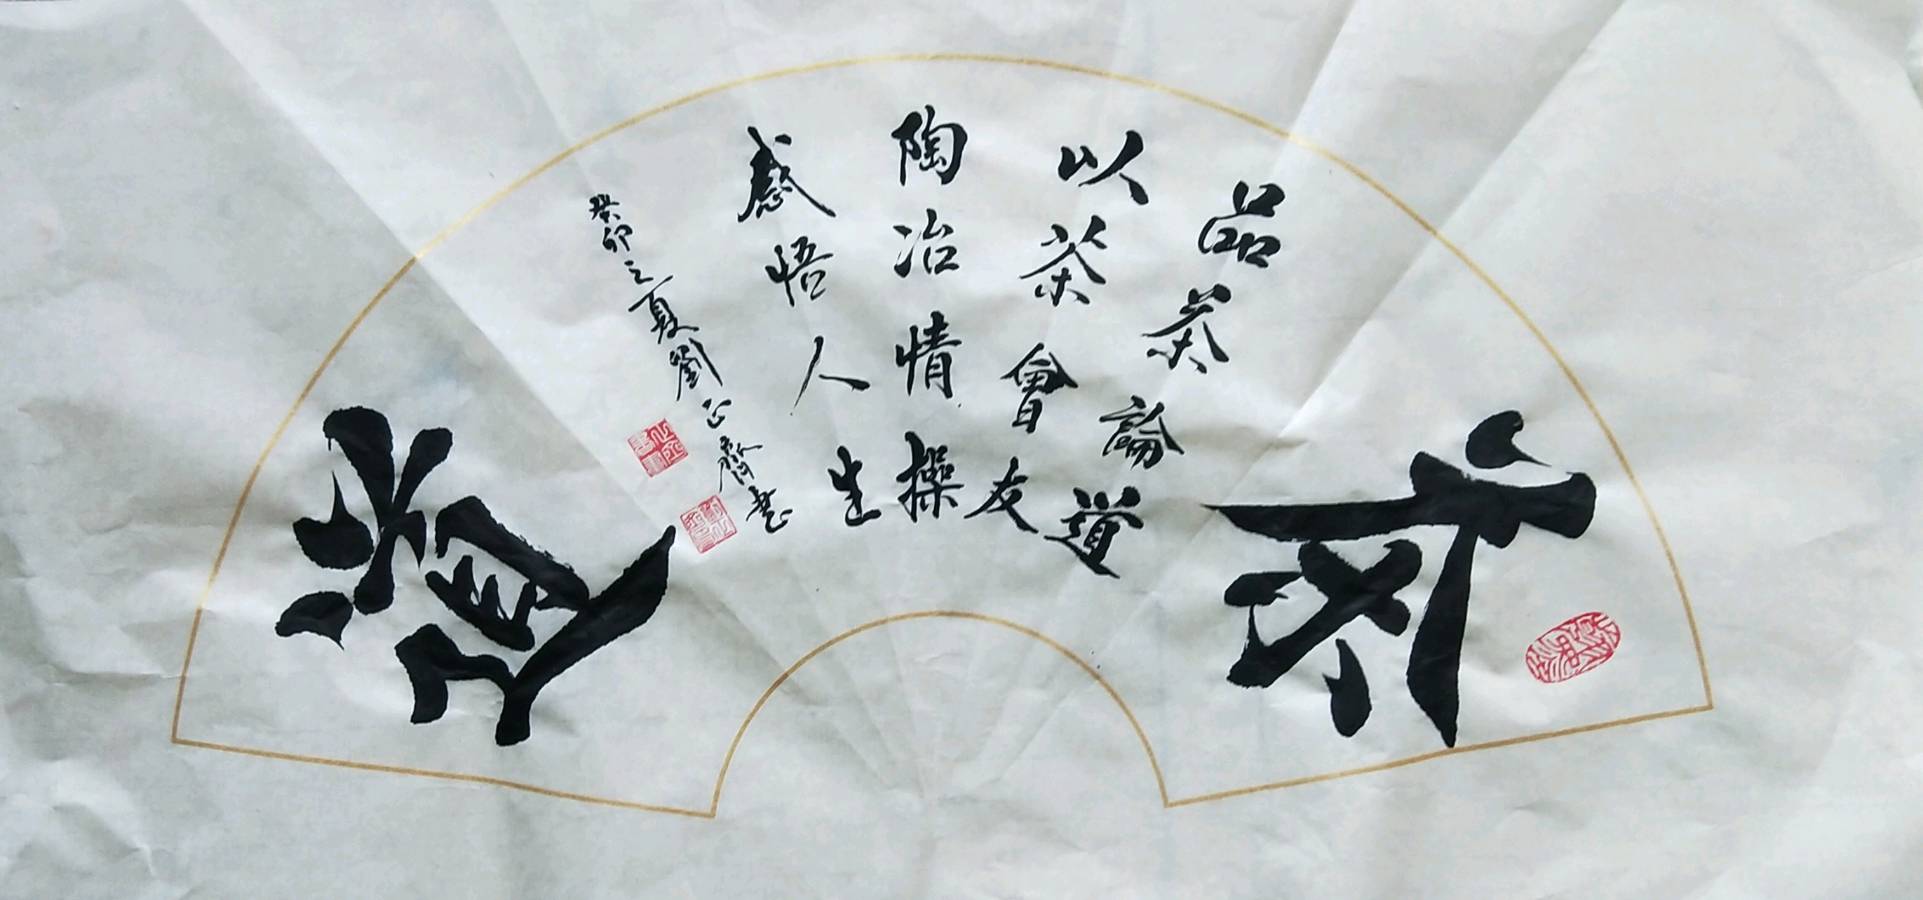 茶
品茶論道
以茶會友
陶冶情操
感悟人生
癸卯之夏劉正齋書
道